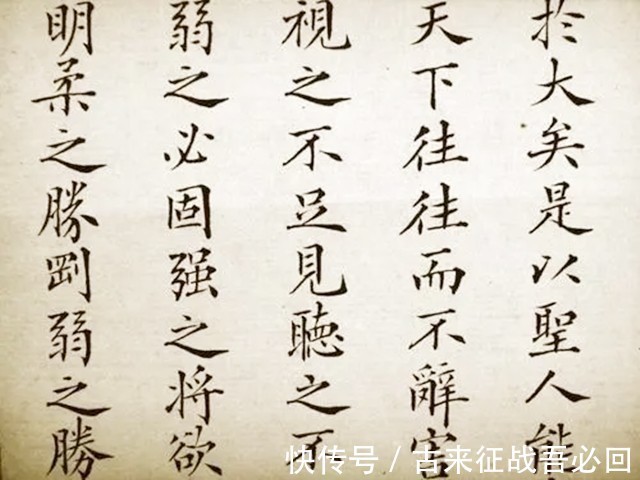 扵大矣是以聖人能
天下往往而不辭害
視之不足見聽之不
弱之必固强之将欲
明柔之勝剛弱之勝
快传号/古来征战吾必回